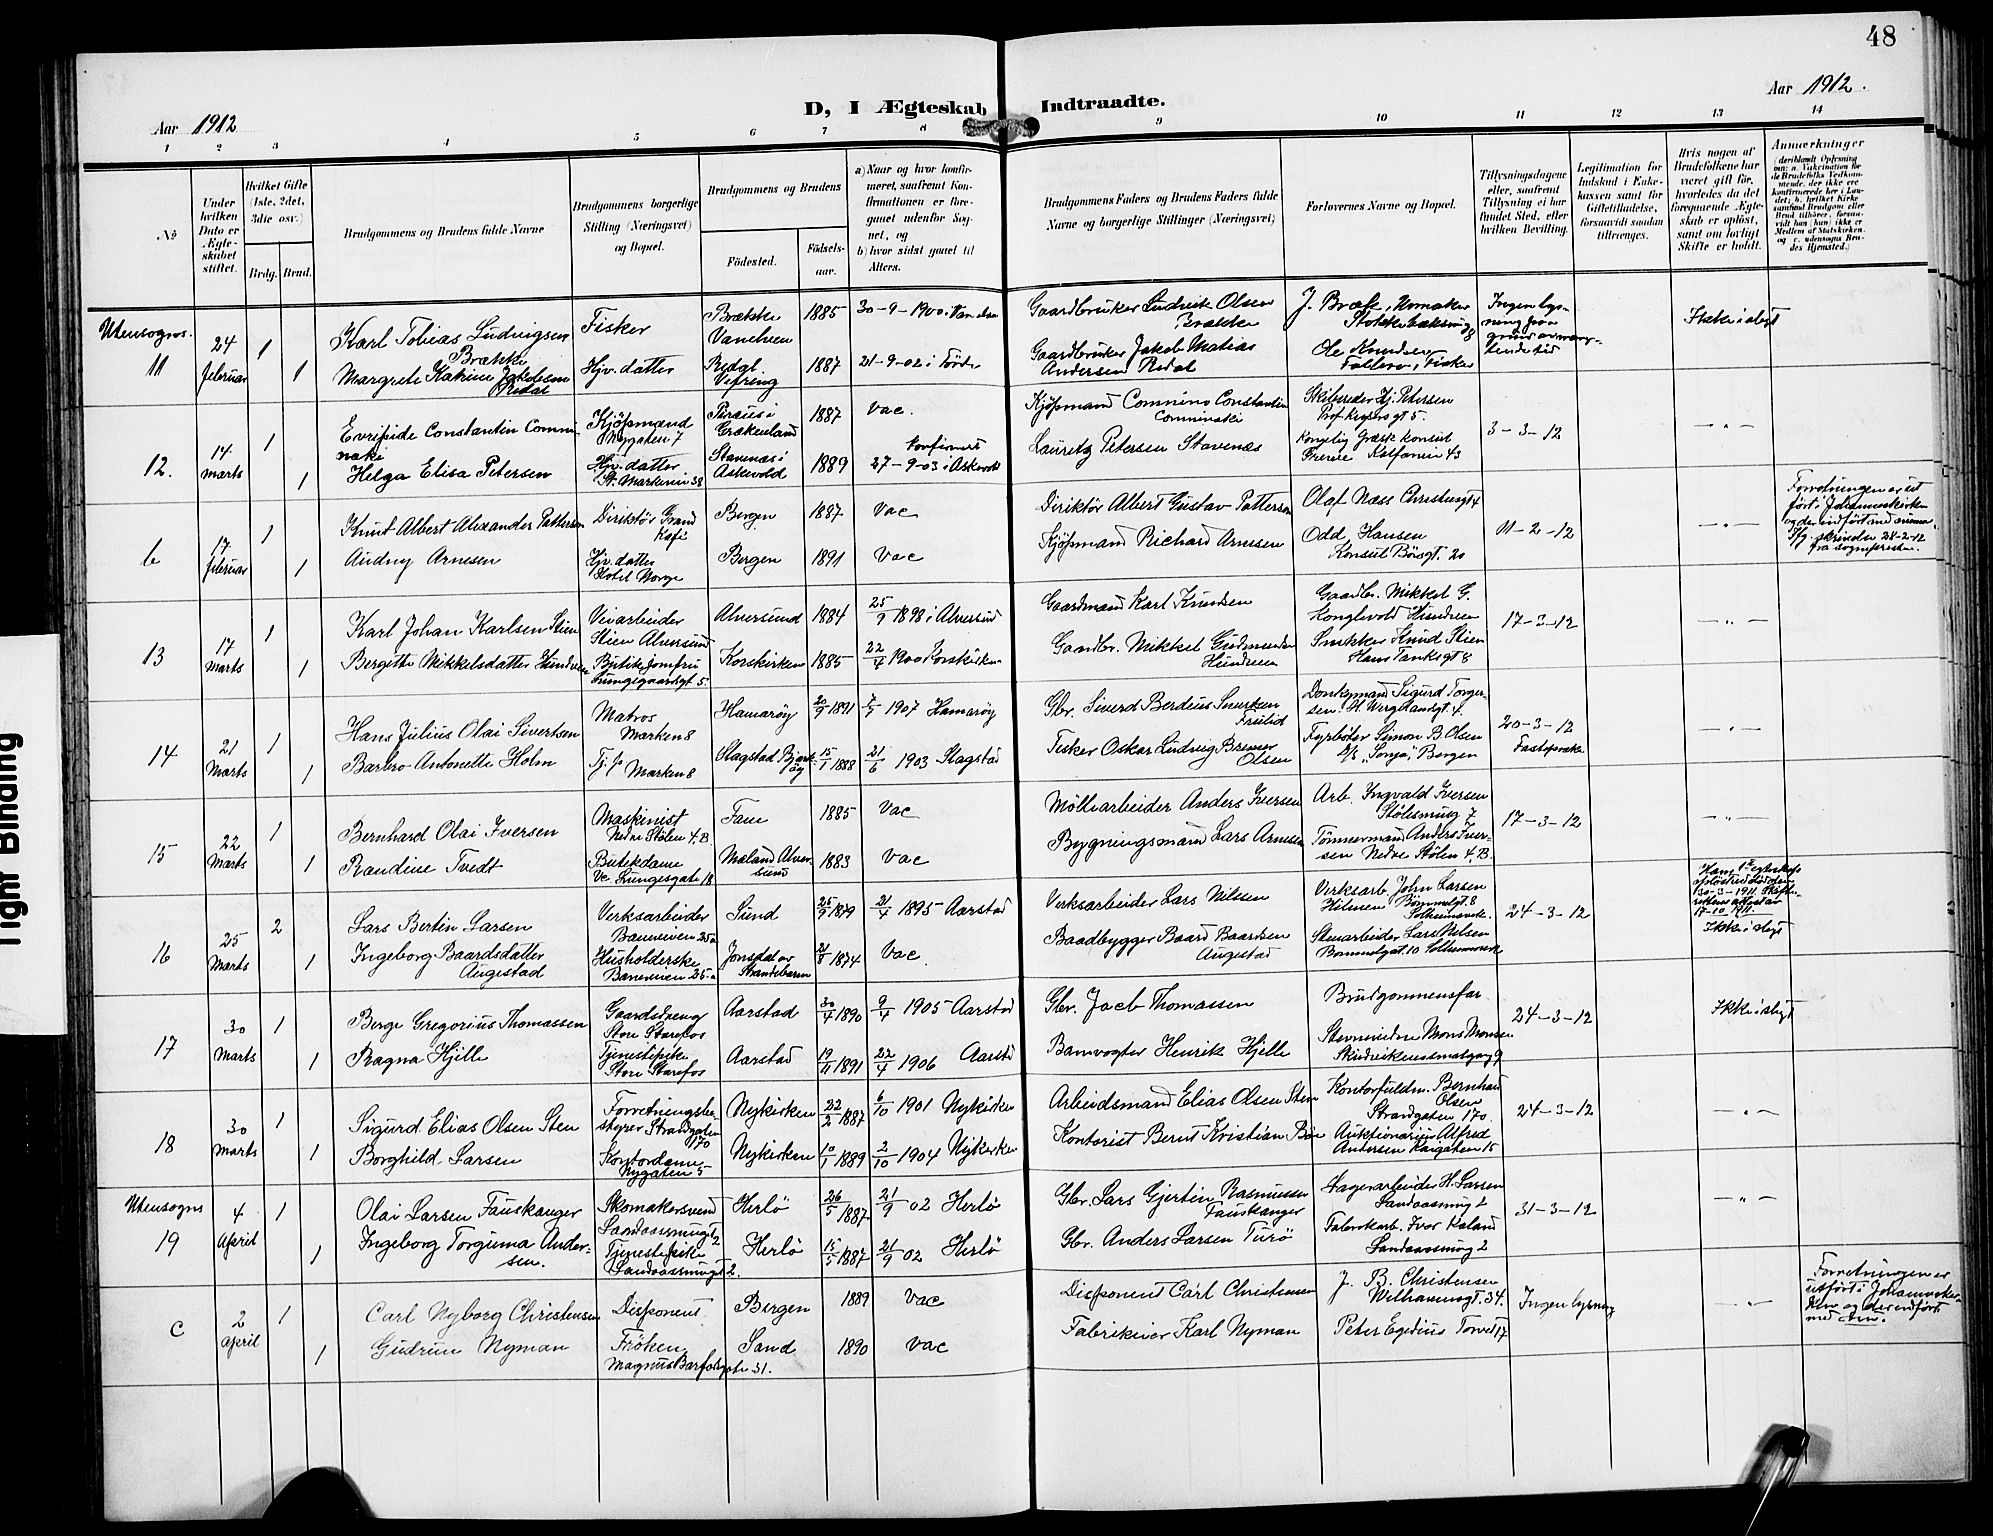 48
Aar 1912
D, I Ægteskab Indtraadte.
Aar 1912.
1 2 3 4 5 6 7 8 9 10 11 12 13 14
No
Under hvilken Dato er Ægteskabet stiftet.
Hvilket Gifte (1ste, 2det, 3die osv.)
Brdg. Brud.
Brudgommens og Brudens fulde Navne
Brudgommens borgerlige Stilling (Næringsvei) og Bopæl.
Brudgommens og Brudens
Fødested.
Fødselsaar.
a) Naar og hvor konfirmeret, saafremt Konfirmationen er foregaaet udenfor Sognet, og
b) hvor sidst gaaet til Alters.
Brudgommens Faders og Brudens Faders fulde Navne og borgerlige Stillinger (Næringsvei)
Forlovernes Navne og Bopæl.
Tillysningsdagene eller, saafremt Tillysning ei har fundet Sted, efter hvilken Bevilling.
Legitimation for Indskud i Enkekassen samt for Giftetilladelse, forsaavidt saadan tiltrænges.
Hvis nogen af Brudefolkene har været gift før, hvorledes da det foregaaende Ægteskab er opløst, samt om lovligt Skifte er holdt.
Anmærkninger
Utensogns.
11
24 Februar
1
Karl Tobias Ludvigsen Brække
Fisker
Brække Vanelven
1885
30-9-1900 i Vanelven
Gaardbruker Ludvik Olsen Brække
Ingen lysning
Ikke i slegt
1
Margrete Katrine Jakobsen Redal
Hjv. datter
Redal Vefring
1887
21-9-02 i Førde
Gaardbruker Jakob Matias Andersen Redal
Ole Knudsen
12.
14 Marts
1
Evripide Constantin Comninaki
Kjøpmand Nygaten 7
Piræus i Grækenland
1887
Vac.
Kjøpmand Comnino Constantin Comninaki
Skibsreder Hj. Petersen Prof. Keysers gt 5.
3-3-12
-"-
1
Helga Elisa Petersen
Hjv. datter St. Markevei 38
Stavenæs i Askevold
1889
Konfirmert 27-9-03 i Askevold
Lauretz Petersen Stavenæs
Kongelig Græsk konsul Kalfarvei 43
b
17 Februar
1
Knut Albert Alexander Patterson
Direktør Grand Kafe
Bergen
1887
Vac
Direktør Albert Gustav Patterson
Olaf Næss Christiesgt 4
11-2-12
-"-
Forretningen er utført i Johanneskirken og der indført med
1
Audny Arnesen
Hjv. datter Hotel Norge
Bergen
1891
Vac
Kjøpmand Richard Arnesen
Odd Hansen Konsul Børsgt. 20
13
17 Marts
1
Karl Johan Karlsen Stien
Veiarbeider Stien Alversund
Alversund
1884
25/9 1898 i Alversund
Gaardmand Karl Knudsen
Gaardbr. Mikkel G.
17-3-12
-"-
1
Bergitte Mikkelsdatter Hundven
Butikjomfru Lungegaardsgt 5
Korskirken
1885
22/4 1900 Korskirken
Gaardbr. Mikkel Gudmundsen Hundven
Snekker Knud Stien Hans Tanksgt 8
14
21 Marts
1
Hans Julius Olai Sivertsen
Matros Marken 8
Hamarøy
20/9 1891
7/7 1907 Hamarøy
Gbr. Siverd Berdius
Donkymand Sigurd Torgersen. H. Wergelandsgt. 4
20-3-12
-"-
1
Barbro Antonette Holm
Tj. p. Marken 8
Stagstad
15/1 1888
21/6 1903 Stagstad
Fisker Oskar Ludvig Bremer Olsen
Fyrbøter Simon B. Olsen D/S "Sonja", Bergen
15
22 Marts
1
Bernhard Olai Iversen
Maskinist Nedre Stølen 4. B
Fane
1885
Vac
Møllearbeider Anders Iversen
Arb. Ingvald Iversen Stølesmug 7
17-3-12
-"-
1
Randine Tvedt
Butikdame Ve. Lungesgate 18
Mæland Alversund
1883
Vac
Bygningsmand Lars Arnesen
Tømmermand Anders Iversen Nedre Stølen 4. B.
16
25 Marts
2
Lars Bertin Larsen
Verksarbeider Baneveien 25a
Sund
25/9 1879
21/4 1895 Aarstad
Verksarbeider Lars Nilssen
Verksarb. John Larsen
24-3-12
Hans 1ste egteskap opløst ved døden 30-3-1911.
17-10-1911.
Ikke i slegt
1
Ingeborg Baardsdatter Augestad
Husholderske Baneveien 25a
Jonsdal av Strandebarm
21/8 1874
Vac.
Baadbygger Baard Baardsen Augestad
Stenarbeider Lars Nilsen
17
30 Marts
1
Berge Gregorius Thomassen
Gaardsdreng Store Starefos
Aarstad
30/4 1890
9/4 1905 Aarstad
Gbr. Jacob Thomassen
Brudgommens far
24-3-12
Ikke i slegt
1
Ragna Hjelle
Tjenestepike Store Starefos
Aarstad
19/11 1891
22/4 1906 Aarstad
Banvogter Henrik Hjelle
Mons Monsen
18
30 Marts
1
Sigurd Elias Olsen Sten
Forretningsbestyrer Strandgaten 170
Nykirken
22/2 1887
6/10 1901 Nykirken
Arbeidsmand Elias Olsen Sten
Kontorfuldm. Bernhard Olsen Strandgaten 170
24-3-12
-"-
1
Borghild Larsen
Kontordame Nygaten 5
Nykirken
10/1 1889
2/10 1904 Nykirken
Kontorist Bernt Kristian Bøe
Auktionarius Alfred Andersen Kaigaten 15
Utensogns
19
4 April
1
Olai Larsen Fauskanger
Skomakersvend Sandaasmuget 2
Herlø
26/5 1887
21/9 02 Herlø
Gbr. Lars Gjertin Rasmussen Fauskanger
Lagerarbeider H. Larsen Sandaasmug 2
31-3-12
-"-
1
Ingeborg Torguma Andersen.
Tjenestepike Sandaasmuget 2.
Herlø
15/5 1887
21/9 02 Herlø
Gbr. Anders Larsen Turø
Fabrikarb. Ivar Kaland Sandaasmug 2
c
2 April
1
Carl Nyborg Christensen
Disponent
Bergen
1889
Vac
Disponent Carl Christensen
J. B. Christensen Welhavensgt. 34.
Ingen lysning
-"-
Forretningen er utført i Johanneskirken og der indført med
1
Gudrun Nyman
Frøken Magnus Barfotsgate 31.
Sand
1890
Vac
Fabrikeier Karl Nyman
Peter Egidius Torvet 17
Tight Binding